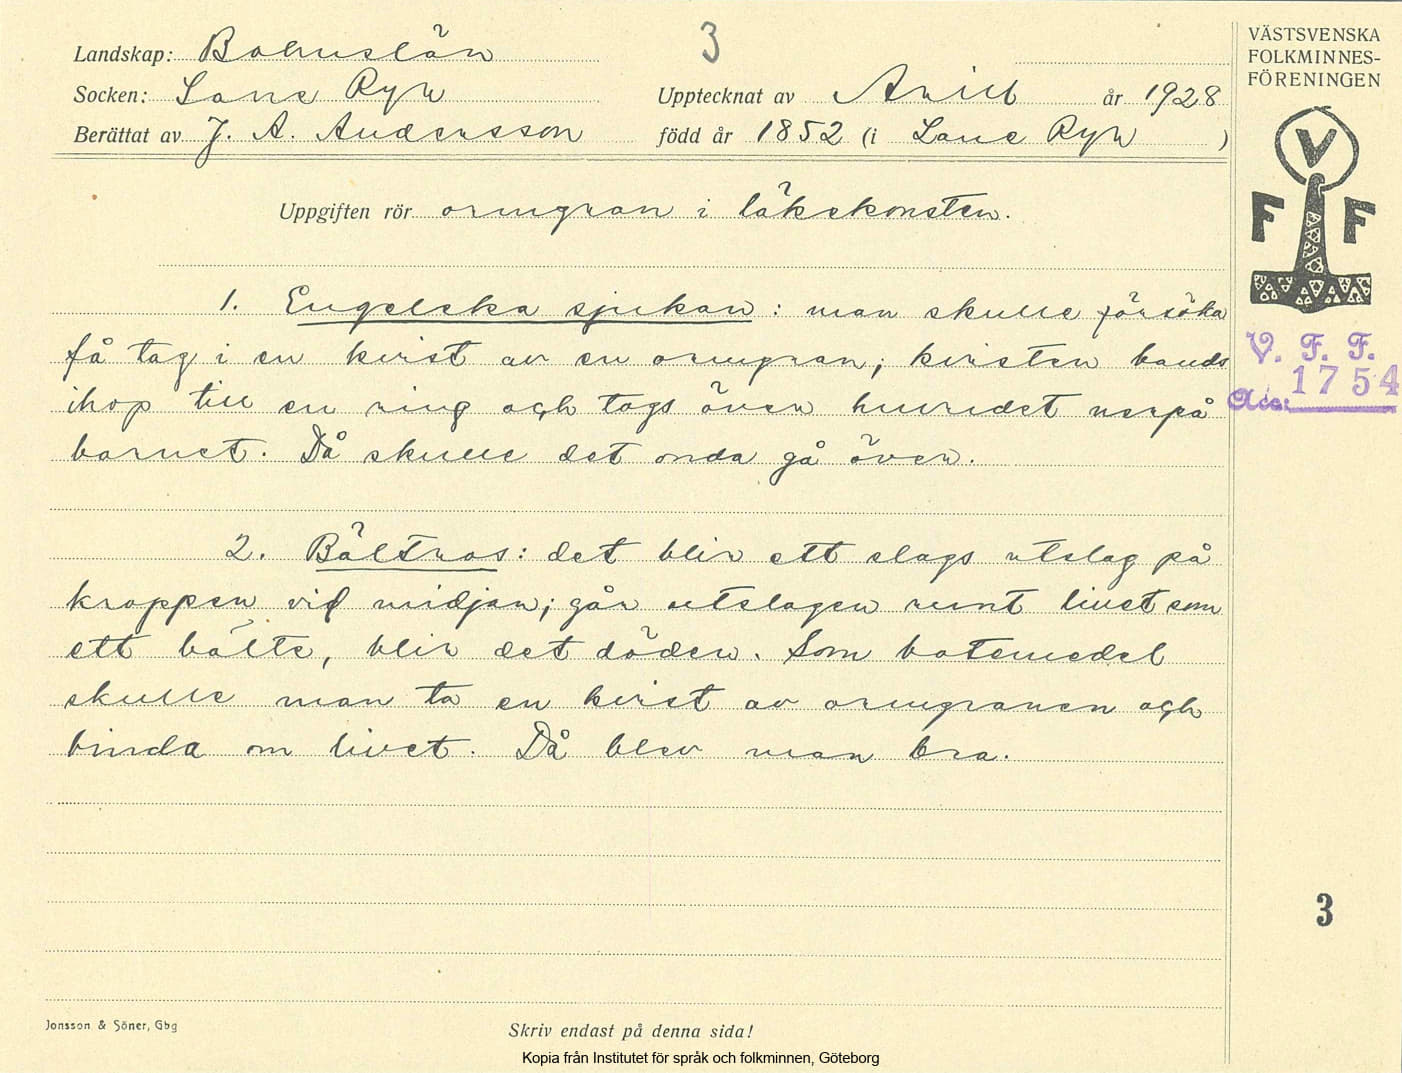 3
VÄSTSVENSKA
FOLKMINNES-
FÖRENINGEN
Landskap: Bohuslän
Socken: Lane Ryr
Upptecknat av Arill år 1928
Berättat av J. A. Andersson född år 1852 (i Lane Ryr )
V
F F
Uppgiften rör ormgran i läkekonsten.
1. Engelska sjukan: man skulle försöka
få tag i en kvist av en ormgran; kvisten bands
ihop till en ring och togs över huvudet nerpå
barnet. Då skulle det onda gå över.
V. F. F.
Acc: 1754
2. Bältros: det blir ett slags utslag på
kroppen vid midjan; går utslagen runt livet som
ett bälte, blir det döden. Som botemedel
skulle man ta en kvist av ormgranen och
binda om livet. Då blev man bra.
3
Jonsson & Söner, Gbg
Skriv endast på denna sida!
Kopia från Institutet för språk och folkminnen, Göteborg